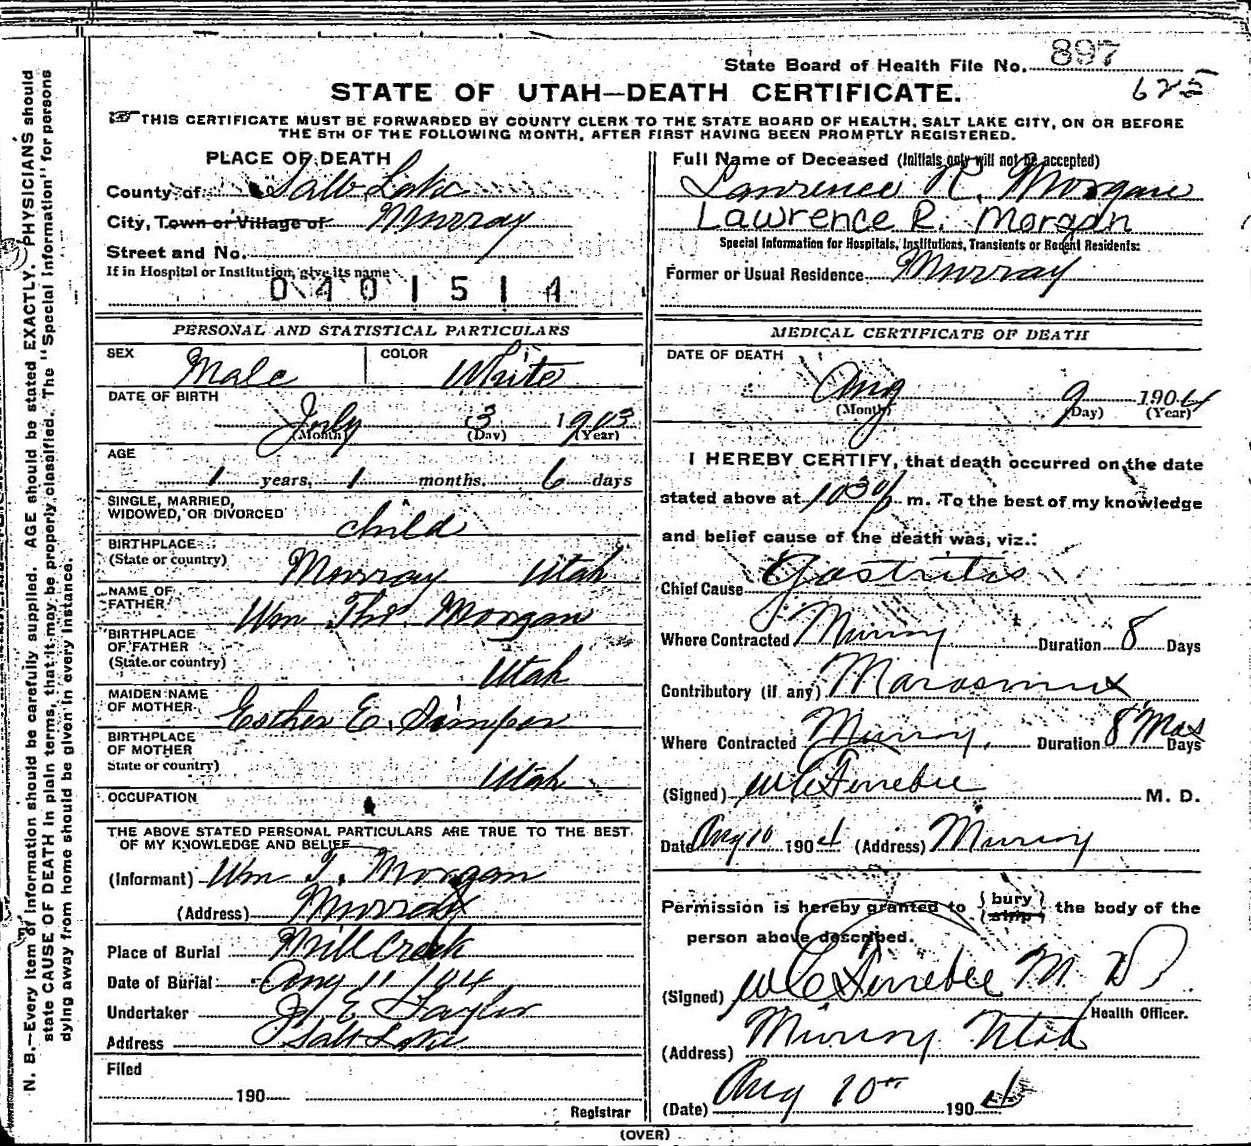 State Board of Health File No. 897
625
STATE OF UTAH—DEATH CERTIFICATE.
THIS CERTIFICATE MUST BE FORWARDED BY COUNTY CLERK TO THE STATE BOARD OF HEALTH, SALT LAKE CITY, ON OR BEFORE
THE 5TH OF THE FOLLOWING MONTH, AFTER FIRST HAVING BEEN PROMPTLY REGISTERED.
PLACE OF DEATH
County of Salt Lake
City, Town or Village of Murray
Street and No.
If in Hospital or Institution, give its name
0401514
PERSONAL AND STATISTICAL PARTICULARS
SEX Male COLOR White
DATE OF BIRTH
July 3 1903
(Month) (Day) (Year)
AGE
1 years, 1 months, 6 days
SINGLE, MARRIED,
WIDOWED, OR DIVORCED child
BIRTHPLACE
(State or country) Murray Utah
NAME OF
FATHER Wm Thos. Morgan
BIRTHPLACE
OF FATHER
(State or country) Utah
MAIDEN NAME
OF MOTHER Esther E. Simper
BIRTHPLACE
OF MOTHER
State or country) Utah
OCCUPATION
THE ABOVE STATED PERSONAL PARTICULARS ARE TRUE TO THE BEST
OF MY KNOWLEDGE AND BELIEF
(Informant) Wm T. Morgan
(Address) Murray
Place of Burial Mill Creek
Date of Burial Aug 11 1904
Undertaker E Taylor
Address Salt Lake
Filed
190
Registrar
Full Name of Deceased (Initials only will not be accepted)
Lawrence R. Morgan
Lawrence R. Morgan
Special Information for Hospitals, Institutions, Transients or Recent Residents:
Former or Usual Residence Murray
MEDICAL CERTIFICATE OF DEATH
DATE OF DEATH
Aug 9 1904
(Month) (Day) (Year)
I HEREBY CERTIFY, that death occurred on the date
stated above at 1030 p m. To the best of my knowledge
and belief cause of the death was, viz.:
Chief Cause Gastritis
Where Contracted Murray Duration 8 Days
Contributory (if any) Marasmus
Where Contracted Murray. Duration 8 Mos Days
(Signed) W C Ferrebee M. D.
Date Aug 10 1904 (Address) Murray
Permission is hereby granted to { bury
ship } the body of the
person above described.
(Signed) W C Ferrebee M. D
Health Officer.
(Address) Murray Utah
(Date) Aug 10th 1904
(OVER)
N. B.—Every item of information should be carefully supplied. AGE should be stated EXACTLY. PHYSICIANS should
state CAUSE OF DEATH in plain terms, that it may be properly classified. The "Special Information" for persons
dying away from home should be given in every instance.